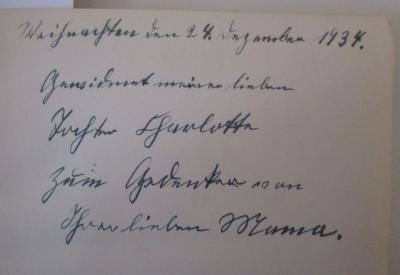 Weihnachten den 24. Dezember 1934.
Gewidmet meiner lieben
Tochter Charlotte
zum Gedenken von
Ihrer lieben Mama.